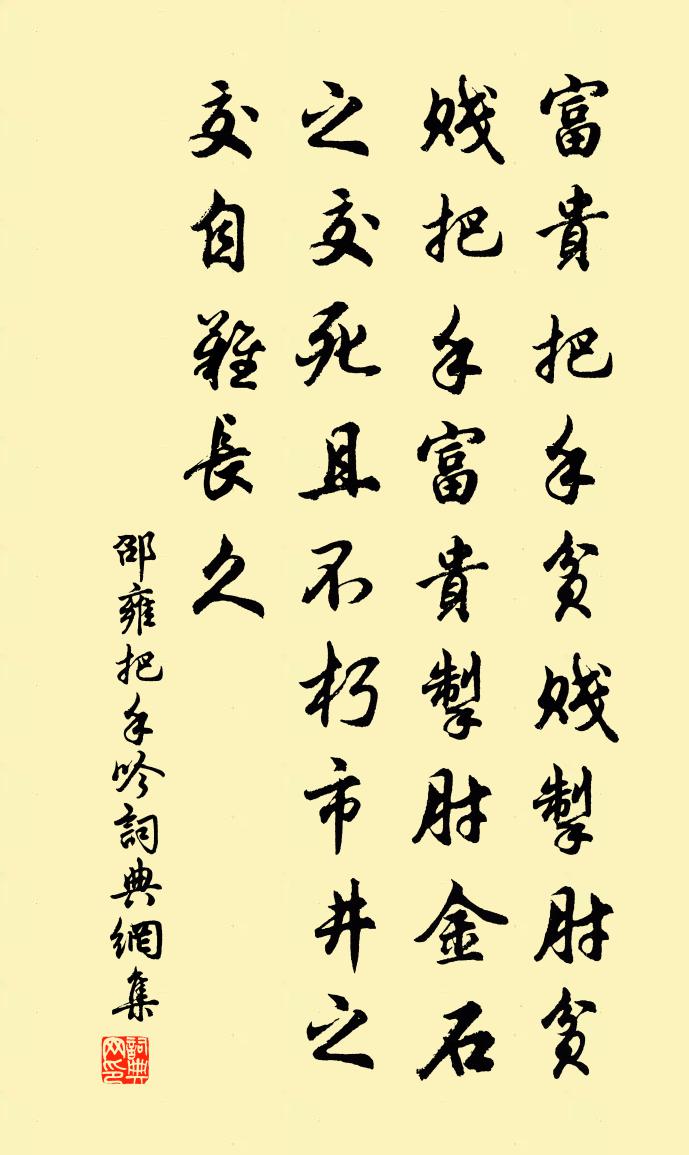 富貴把手貧賤掣肘貧
賤把手富貴掣肘金石
之交死且不朽市井之
交自難長久
邵雍把手吟詞典網集
詞典网印